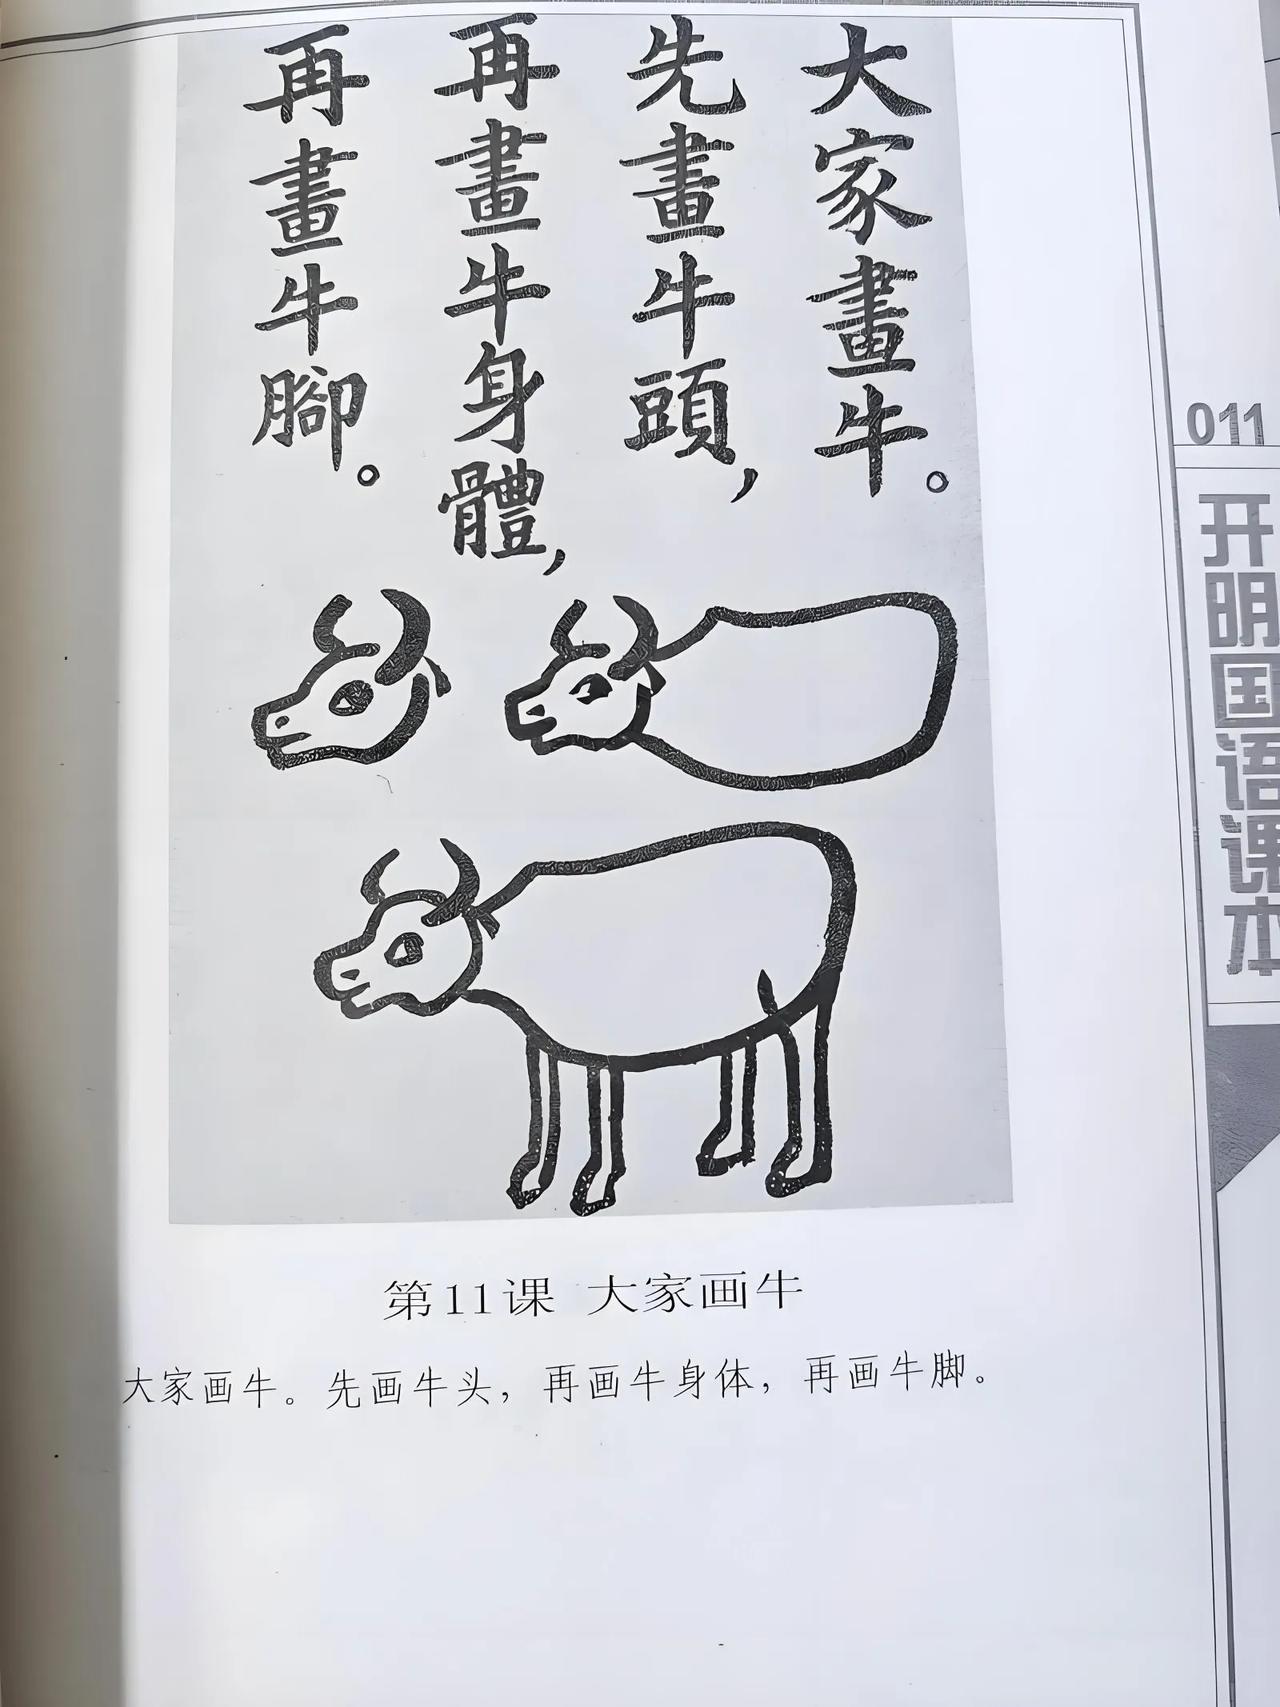 大家畫牛。
先畫牛頭，
再畫牛身體，
再畫牛腳。
第11课 大家画牛
大家画牛。先画牛头，再画牛身体，再画牛脚。
011
开明国语课本